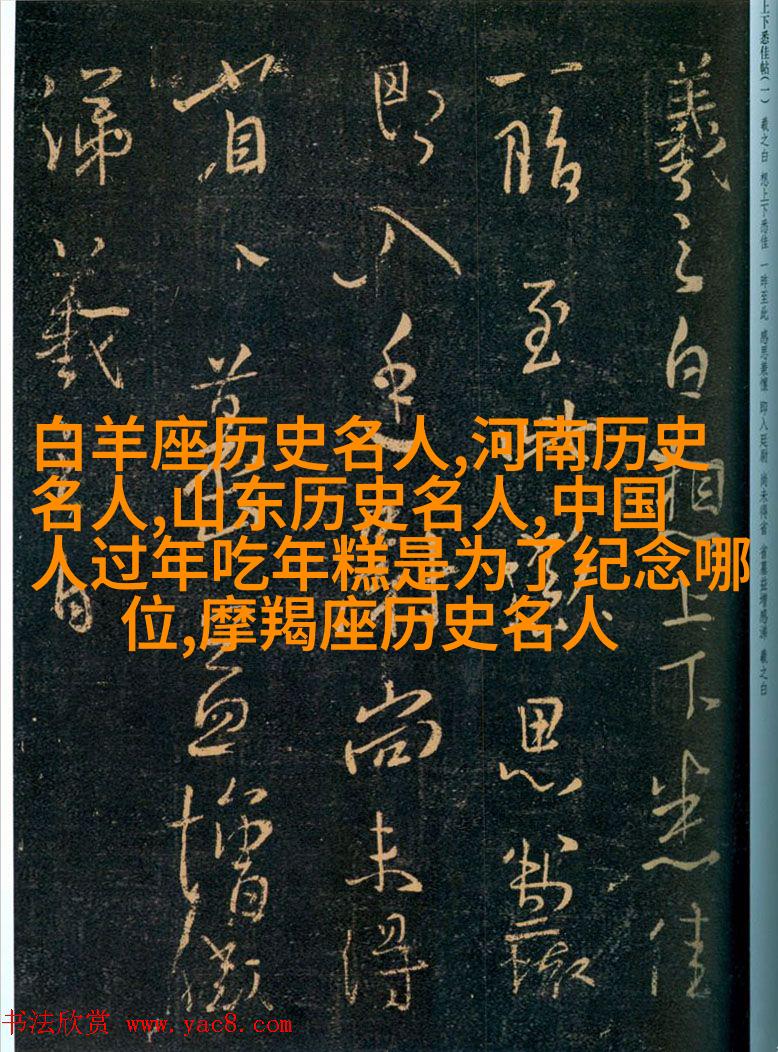 上下悉佳帖(一) 羲之白 想上下悉佳 一昨至此 感思兼懷 即入廷尉 尚未得省 省墓益增感涕 羲之白
羲之白想上下悉佳
一昨至此感思兼
即入廷尚未得
省墓益增感
涕羲之白
白羊座历史名人,河南历史
名人,山东历史名人,中国
人过年吃年糕是为了纪念哪
位,摩羯座历史名人
书法欣赏 www.yac8.com